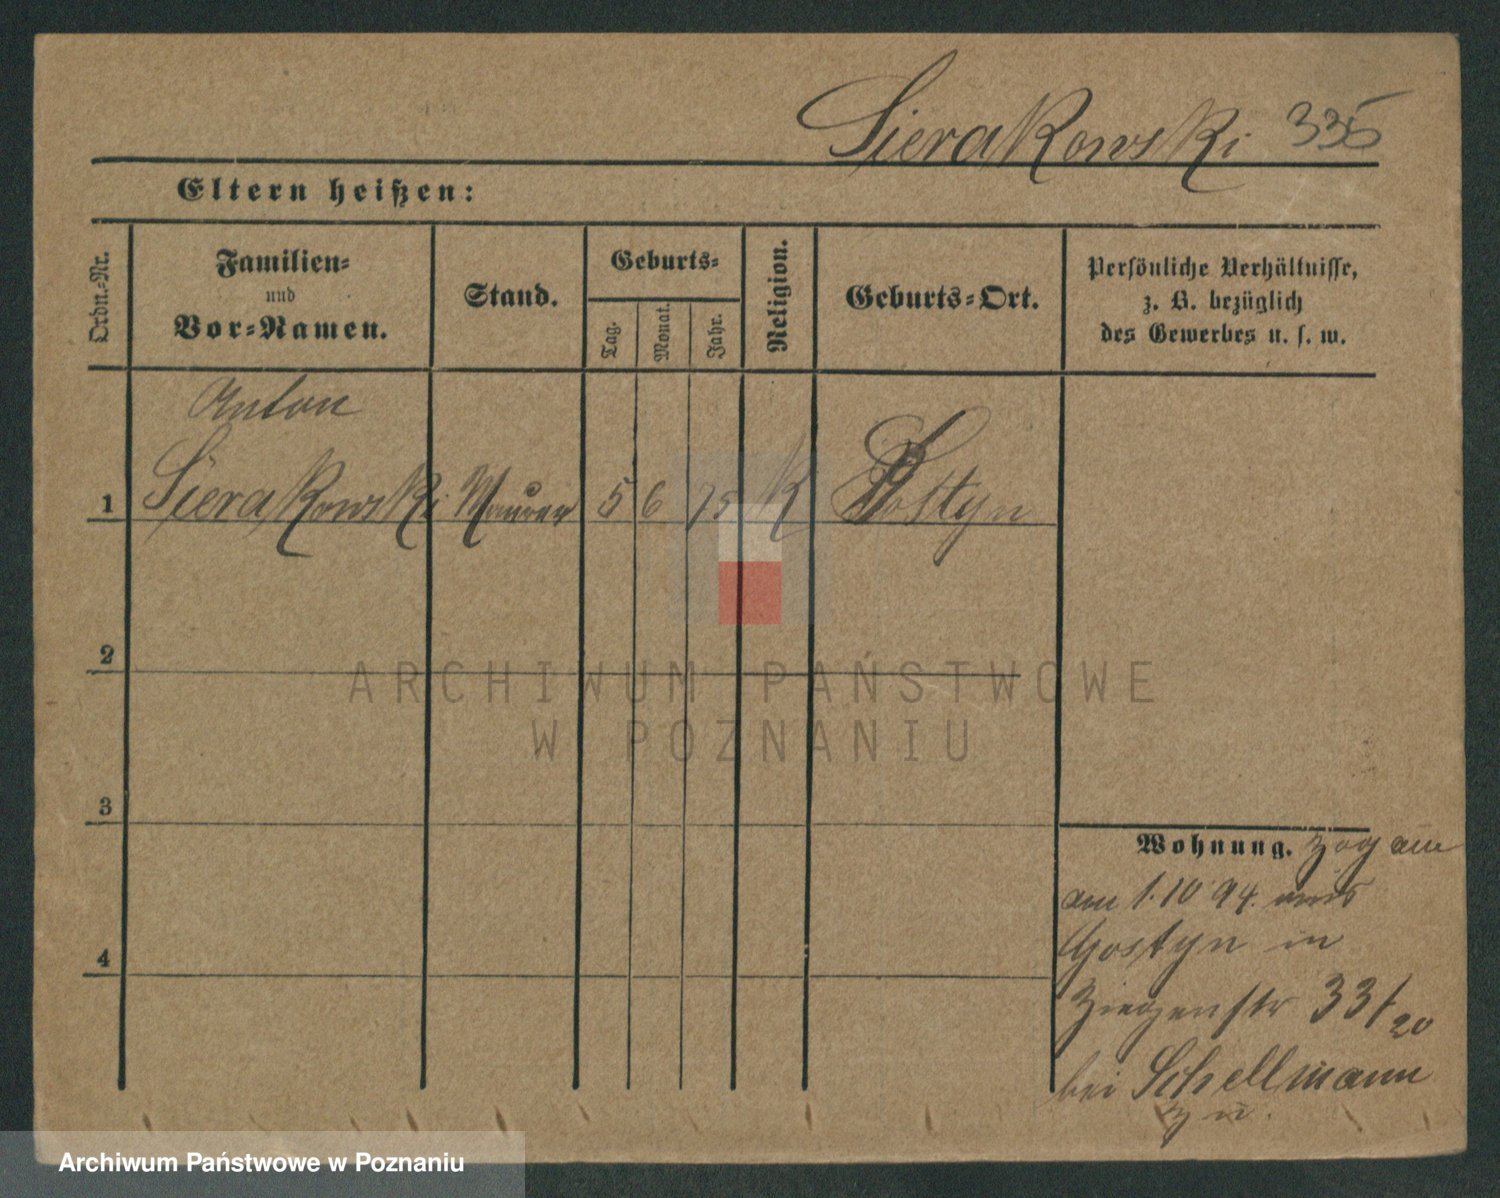 Sierakowski 335
Eltern heißen:
Ordn.-Nr.
Familien-
und
Vor-Namen.
Stand.
Geburts-
Tag.
Monat.
Jahr.
Religion.
Geburts-Ort.
Persönliche Verhältnisse,
z. B. bezüglich
des Gewerbes u. s. w.
Anton
1 Sierakowski Maurer 5 6 75 K Gostyn
2
3
4
Wohnung. Zog am
am 1.10 94. aus
Gostyn in
33/20
bei Schellmann
zu.
ARCHIWUM PAŃSTWOWE
W POZNANIU
Archiwum Państwowe w Poznaniu